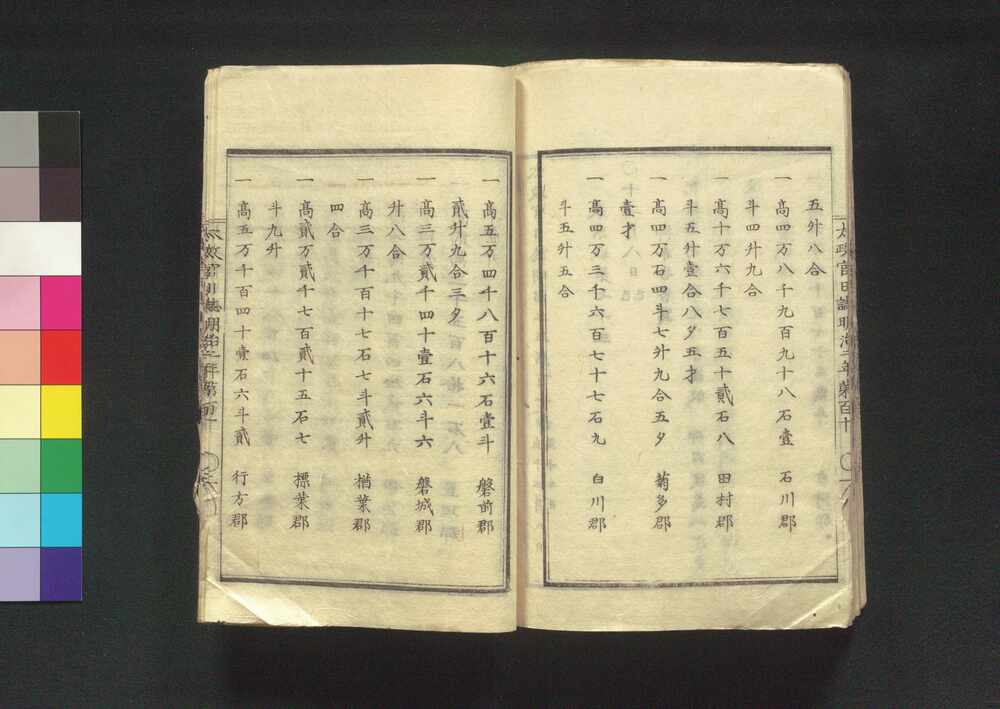 五升八合
一 高四万八千九百九十八石壹 石川郡
斗四升九合
一 高十万六千七百五十貳石八 田村郡
斗五升壹合八夕五才
一 高四万石四斗七升九合五夕 菊多郡
壹才
一 高四万三千六百七十七石九 白川郡
斗五升五合
一 高五万四千八百十六石壹斗 磐前郡
貳升九合三夕
一 高三万貳千四十壹石六斗六 磐城郡
升八合
一 高三万千百十七石七斗貳升 楢葉郡
四合
一 高貳万貳千七百貳十五石七 標葉郡
斗九升
一 高五万千百四十壹石六斗貳 行方郡
太政官日誌明治二年第百十